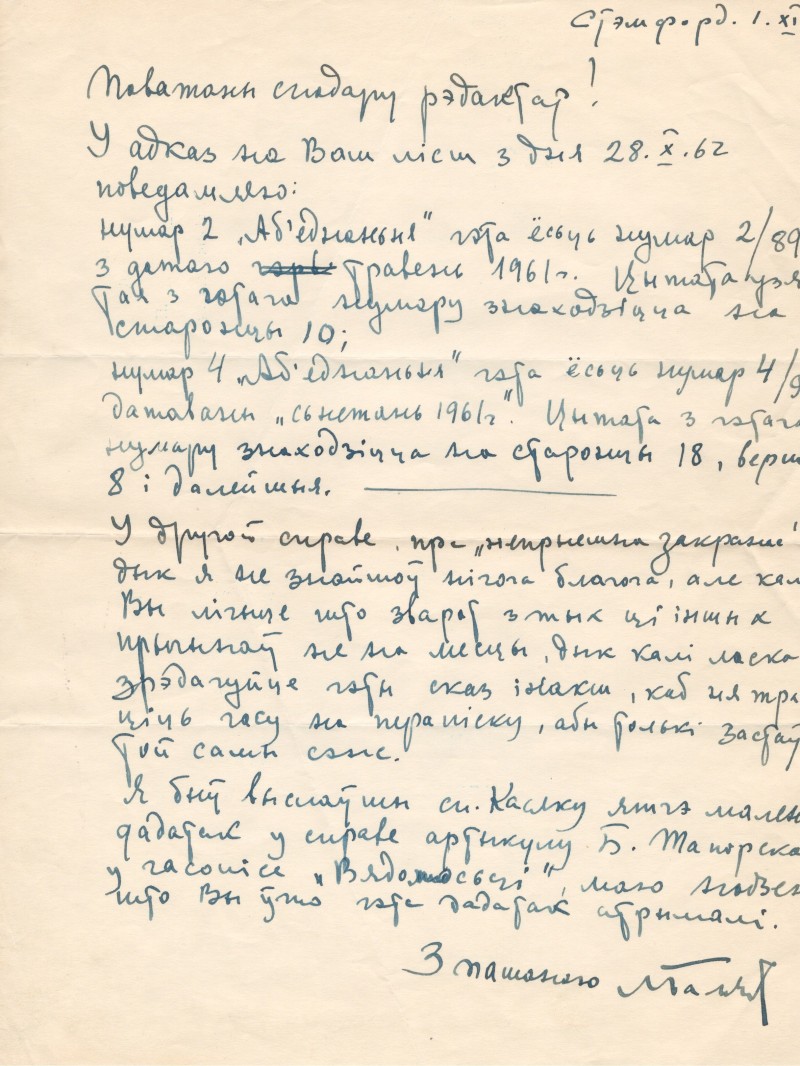 Стэмфорд. 1. XI
Паважаны спадару рэдактар!
У адказ на Ваш ліст з дня 28. X. 62
паведамляю:
нумар 2 „Аб'еднаньня" гэта ёсьць нумар 2/89
з датаю травень 1961г. Цытата узя
тая з гэтага нумару знаходзіцца на
старонцы 10;
нумар 4 „Аб'еднаньня" гэта ёсьць нумар 4/9
датаваны „сьнежань 1961г". Цытата з гэтага
нумару знаходзіцца на старонцы 18, верш
8 і далейшыя.
У другой справе, пра „непрыемна закранае"
дык я не знайшоў нічога благога, але калі
Вы лічыце што зварот з тых ці іншых
прычынаў не на месцы, дык калі ласка
зрэдагуйце гэты сказ інакш, каб ня тра
ціць часу на перапіску, абы толькі застаў
той самы сэнс.
Я быў выслаўшы сп. Касяку яшчэ мален
дадатак у справе артыкулу Б. Тапорска
у часопісе „Вядомосьці", маю надзею
што Вы ўжо гэты дадатак атрымалі.
З пашанаю